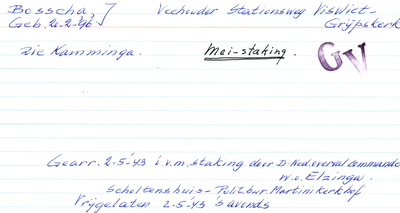 Bosscha, J Veehouder Stationsweg Visvliet-
Geb. 20-2-'96 Grijpskerk
Zie Kamminga. Mei-staking. GV
Gearr. 2-5-'43 i.v.m. staking door D-Ned. overval commando
w.o. Elzinga.
Scheltenshuis - Polit.bur. Martinikerkhof
Vrijgelaten 2-5-'43 's avonds